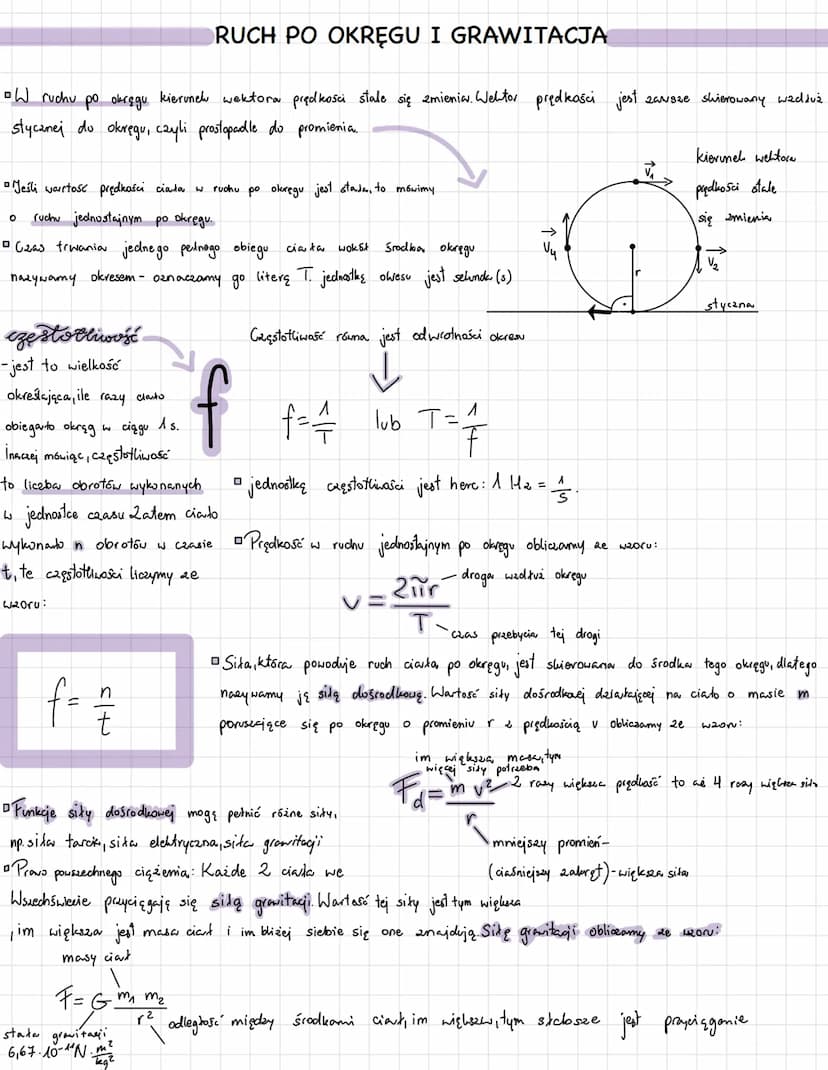 RUCH PO OKRĘGU I GRAWITACJA
▫W ruchu po okręgu kierunek wektora prędkości stale się zmienia. Wektor prędkości jest zawsze skierowany wzdłuż
stycznej do okręgu, czyli prostopadle do promienia.
kierunek wektora
prędkości stale
się zmienia
V₁
V₂
V₄
r
styczna
▫Jeśli wartość prędkości ciała w ruchu po okręgu jest stała, to mówimy
o ruchu jednostajnym po okręgu.
▫Czas trwania jednego pełnego obiegu ciała wokół środka okręgu
nazywamy okresem - oznaczamy go literą T. jednostką okresu jest sekunda (s)
częstotliwość
-jest to wielkość
określająca, ile razy ciało
obiegało okrąg w ciągu 1 s.
Inaczej mówiąc, częstotliwość
to liczba obrotów wykonanych
w jednostce czasu Zatem ciało
wykonało n obrotów w czasie
t, te częstotliwości liczymy ze
wzoru:
f
f = n/t
Częstotliwość równa jest odwrotności okresu
f = 1/T lub T = 1/f
▫jednostką częstotliwości jest herc: 1 Hz = 1/s.
▫Prędkość w ruchu jednostajnym po okręgu obliczamy ze wzoru:
v = 2πr/T
droga wzdłuż okręgu
czas przebycia tej drogi
▫Siła, która powoduje ruch ciała po okręgu, jest skierowana do środka tego okręgu, dlatego
nazywamy ją siłą dośrodkową. Wartość siły dośrodkowej działającej na ciało o masie m
poruszające się po okręgu o promieniu r z prędkością v obliczamy ze wzoru:
im większa masa, tym
więcej siły potrzeba
F_d = m v²/r
2 razy większa prędkość to aż 4 razy większa siła
mniejszy promień-
(ciaśniejszy zakręt)-większa siła
▫Funkcje siły dośrodkowej mogą pełnić różne siły,
np. siła tarcia, siła elektryczna, siła grawitacji
▫Prawo powszechnego ciążenia: Każde 2 ciała we
Wszechświecie przyciągają się siłą grawitacji. Wartość tej siły jest tym większa
, im większa jest masa ciał i im bliżej siebie się one znajdują. Siłę grawitacji obliczamy ze wzoru:
masy ciał
F = G m₁ m₂/r²
stała grawitacji
6,67·10⁻¹¹N·m²/kg²
odległość między środkami ciał, im większa, tym słabsze jest przyciąganie